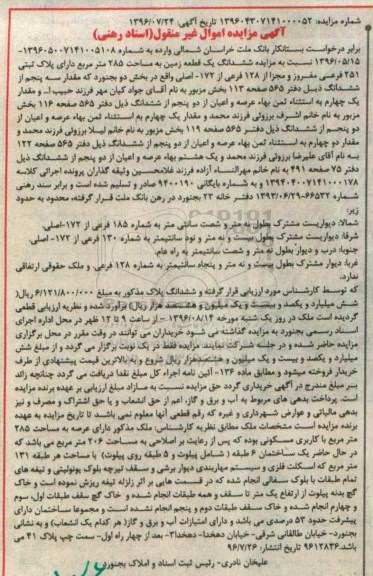 شماره مزایده: ۱۳۹۶۰۴۳۰۷۱۴۱۰۰۰۰۵۲ تاریخ آگهی: ۱۳۹۶/۰۷/۲۴
آگهی مزایده اموال غیر منقول(اسناد رهنی)
برابر درخواست بستانکار بانک ملت خراسان شمالی وارده به شماره ۱۳۹۶۰۵۰۰۷۱۴۱۰۰۵۱۰۸-
۱۳۹۶/۰۵/۱۵ نسبت به مزایده ششدانگ یک قطعه زمین به مساحت ۲۸۵ متر مربع دارای پلاک ثبتی
۲۵۱ فرعی مفروز و مجزا از ۱۲۸ فرعی از ۱۷۲- اصلی واقع در بخش دو بجنورد که مقدار سه پنجم از
ششدانگ ذیل دفتر ۵۶۵ صفحه ۱۱۳ بخش مزبور به نام آقای جواد کیان مهر فرزند حبیب ا... و مقدار
یک چهارم به استثناء ثمن بهاء عرصه و اعیان از دو پنجم از ششدانگ ذیل دفتر ۵۶۵ صفحه ۱۱۶ بخش
مزبور به نام خانم اشرف برزوئی فرزند محمد و مقدار یک چهارم به استثناء ثمن بهاء عرصه و اعیان از
دو پنجم از ششدانگ ذیل دفتر ۵۶۵ صفحه ۱۱۹ بخش مزبور به نام خانم لیلا برزوئی فرزند محمد و
مقدار دو چهارم به استثناء ثمن بهاء عرصه و اعیان از دو پنجم از ششدانگ ذیل دفتر ۵۶۵ صفحه ۱۲۲
به نام آقای علیرضا برزوئی فرزند محمد و یک هشتم بهاء عرصه و اعیان از دو پنجم از ششدانگ ذیل
دفتر ۷۵ صفحه ۴۹۱ به نام خانم مهرالنساء آزاده فرزند غلامحسین وثیقه گذاران پرونده اجرائی کلاسه
۱۳۹۴۰۴۰۰۷۱۴۱۰۰۰۱۷۸ و به شماره بایگانی ۹۴۰۰۱۹۰ صادر و تسلیم شده است و برابر سند رهنی
شماره ۶۶۵۳۲-۱۳۹۳/۰۶/۲۹ دفتر خانه ۲۲ بجنورد در رهن بانک ملت قرار گرفته، محدود به حدود
زیر:
شمالا: دیواریست مشترک بطول نه متر و شصت سانتی متر به شماره ۱۸۵ فرعی از ۱۷۲-اصلی.
شرقا: دیواریست مشترک بطول بیست و نه متر و نود سانتیمتر به شماره ۱۳۰ فرعی از ۱۷۲- اصلی.
جنوبا: درب و دیوار بطول نه متر و شصت سانتیمتر به راه عام.
غربا: دیوار مشترک بطول بیست و نه متر و پنجاه سانتیمتر به شماره ۱۲۸ فرعی. و ملک حقوقی ارتفاقی
ندارد.
که توسط کارشناس مورد ارزیابی قرار گرفته و ششدانگ پلاک مذکور به مبلغ ۶/۱۲۱/۸۰۰/۰۰۰ ریال(
شش میلیارد و یکصد و بیست و یک میلیون و هشتصد هزار ریال) برآورد شده و نظریه ارزیابی قطعی
گردیده است ملک در روز یک شنبه مورخه ۱۳۹۶/۰۸/۱۴ - از ساعت ۹ تا ۱۲ ظهر در محل اداره اجرای
اسناد رسمی بجنورد به مزایده گذاشته می شود خریداران می توانند در وقت مقرر در محل برگزاری
مزایده حاضر شده و در جلسه شرکت نمایند. مزایده فقط در یک نوبت برگزار می گردد و از مبلغ شش
میلیارد و یکصد و بیست و یک میلیون و هشتصدهزار ریال شروع و به بالاترین قیمت پیشنهادی از طرف
خریدار فروخته میشود و مطابق ماده ۱۳۶- آئین نامه اجراء کل مبلغ نقدا دریافت می گردد چنانچه زائد
بر مبلغ مندرج در آگهی خریداری گردد حق مزایده نسبت به مازاد مبلغ ارزیابی بر عهده برنده مزایده
است. پرداخت بدهی های مربوط به آب و برق و گاز، اعم از حق انشعاب و یا حق اشتراک و مصرف و نیز
بدهی مالیاتی و عوارض شهرداری و غیره که رقم قطعی آنها معلوم نمی باشد تا تاریخ مزایده به عهده
برنده مزایده است مشخصات ملک مطابق نظریه کارشناس: ملک مذکور دارای عرصه به مساحت ۲۸۵
متر مربع با کاربری مسکونی بوده که پس از رعایت بر اصلاحی به مساحت ۲۰۶ متر مربع می باشد که
در حال حاضر یک ساختمان ۶ طبقه ( شامل پیلوت و ۵ طبقه روی پیلوت) با مساحت هر طبقه ۱۳۱
متر مربع که اسکلت فلزی و سیستم مهاربندی دیوار برشی و سقف تیرچه بلوک یونولیتی و تیغه های
تمام طبقات با بلوک سفالی انجام شده که در قسمت هایی بر اثر زلزله تیغه ریزش نموده است و خاک
گچ بدنه پیلوت از ارتفاع یک متر تا سقف و همه طبقات انجام شده و خاک گچ سقف طبقات اول، سوم
و چهارم انجام شده و خاک سقف طبقات دوم و پنجم انجام نشده است و مجموعا ساختمان دارای
پیشرفت حدود ۵۳ درصدی می باشد و دارای امتیازات آب و برق و گاز( هر کدام یک انشعاب) و به نشانی
بجنورد- خیابان طالقانی شرقی- خیابان دهخدا- دهخدا۳- بعد از چهار راه اول- سمت چپ پلاک ۴۱ می
باشد.۹۶۱۲۸۳۶ تاریخ انتشار: ۹۶/۷/۲۶
علیخان نادری- رئیس ثبت اسناد و املاک بجنورد